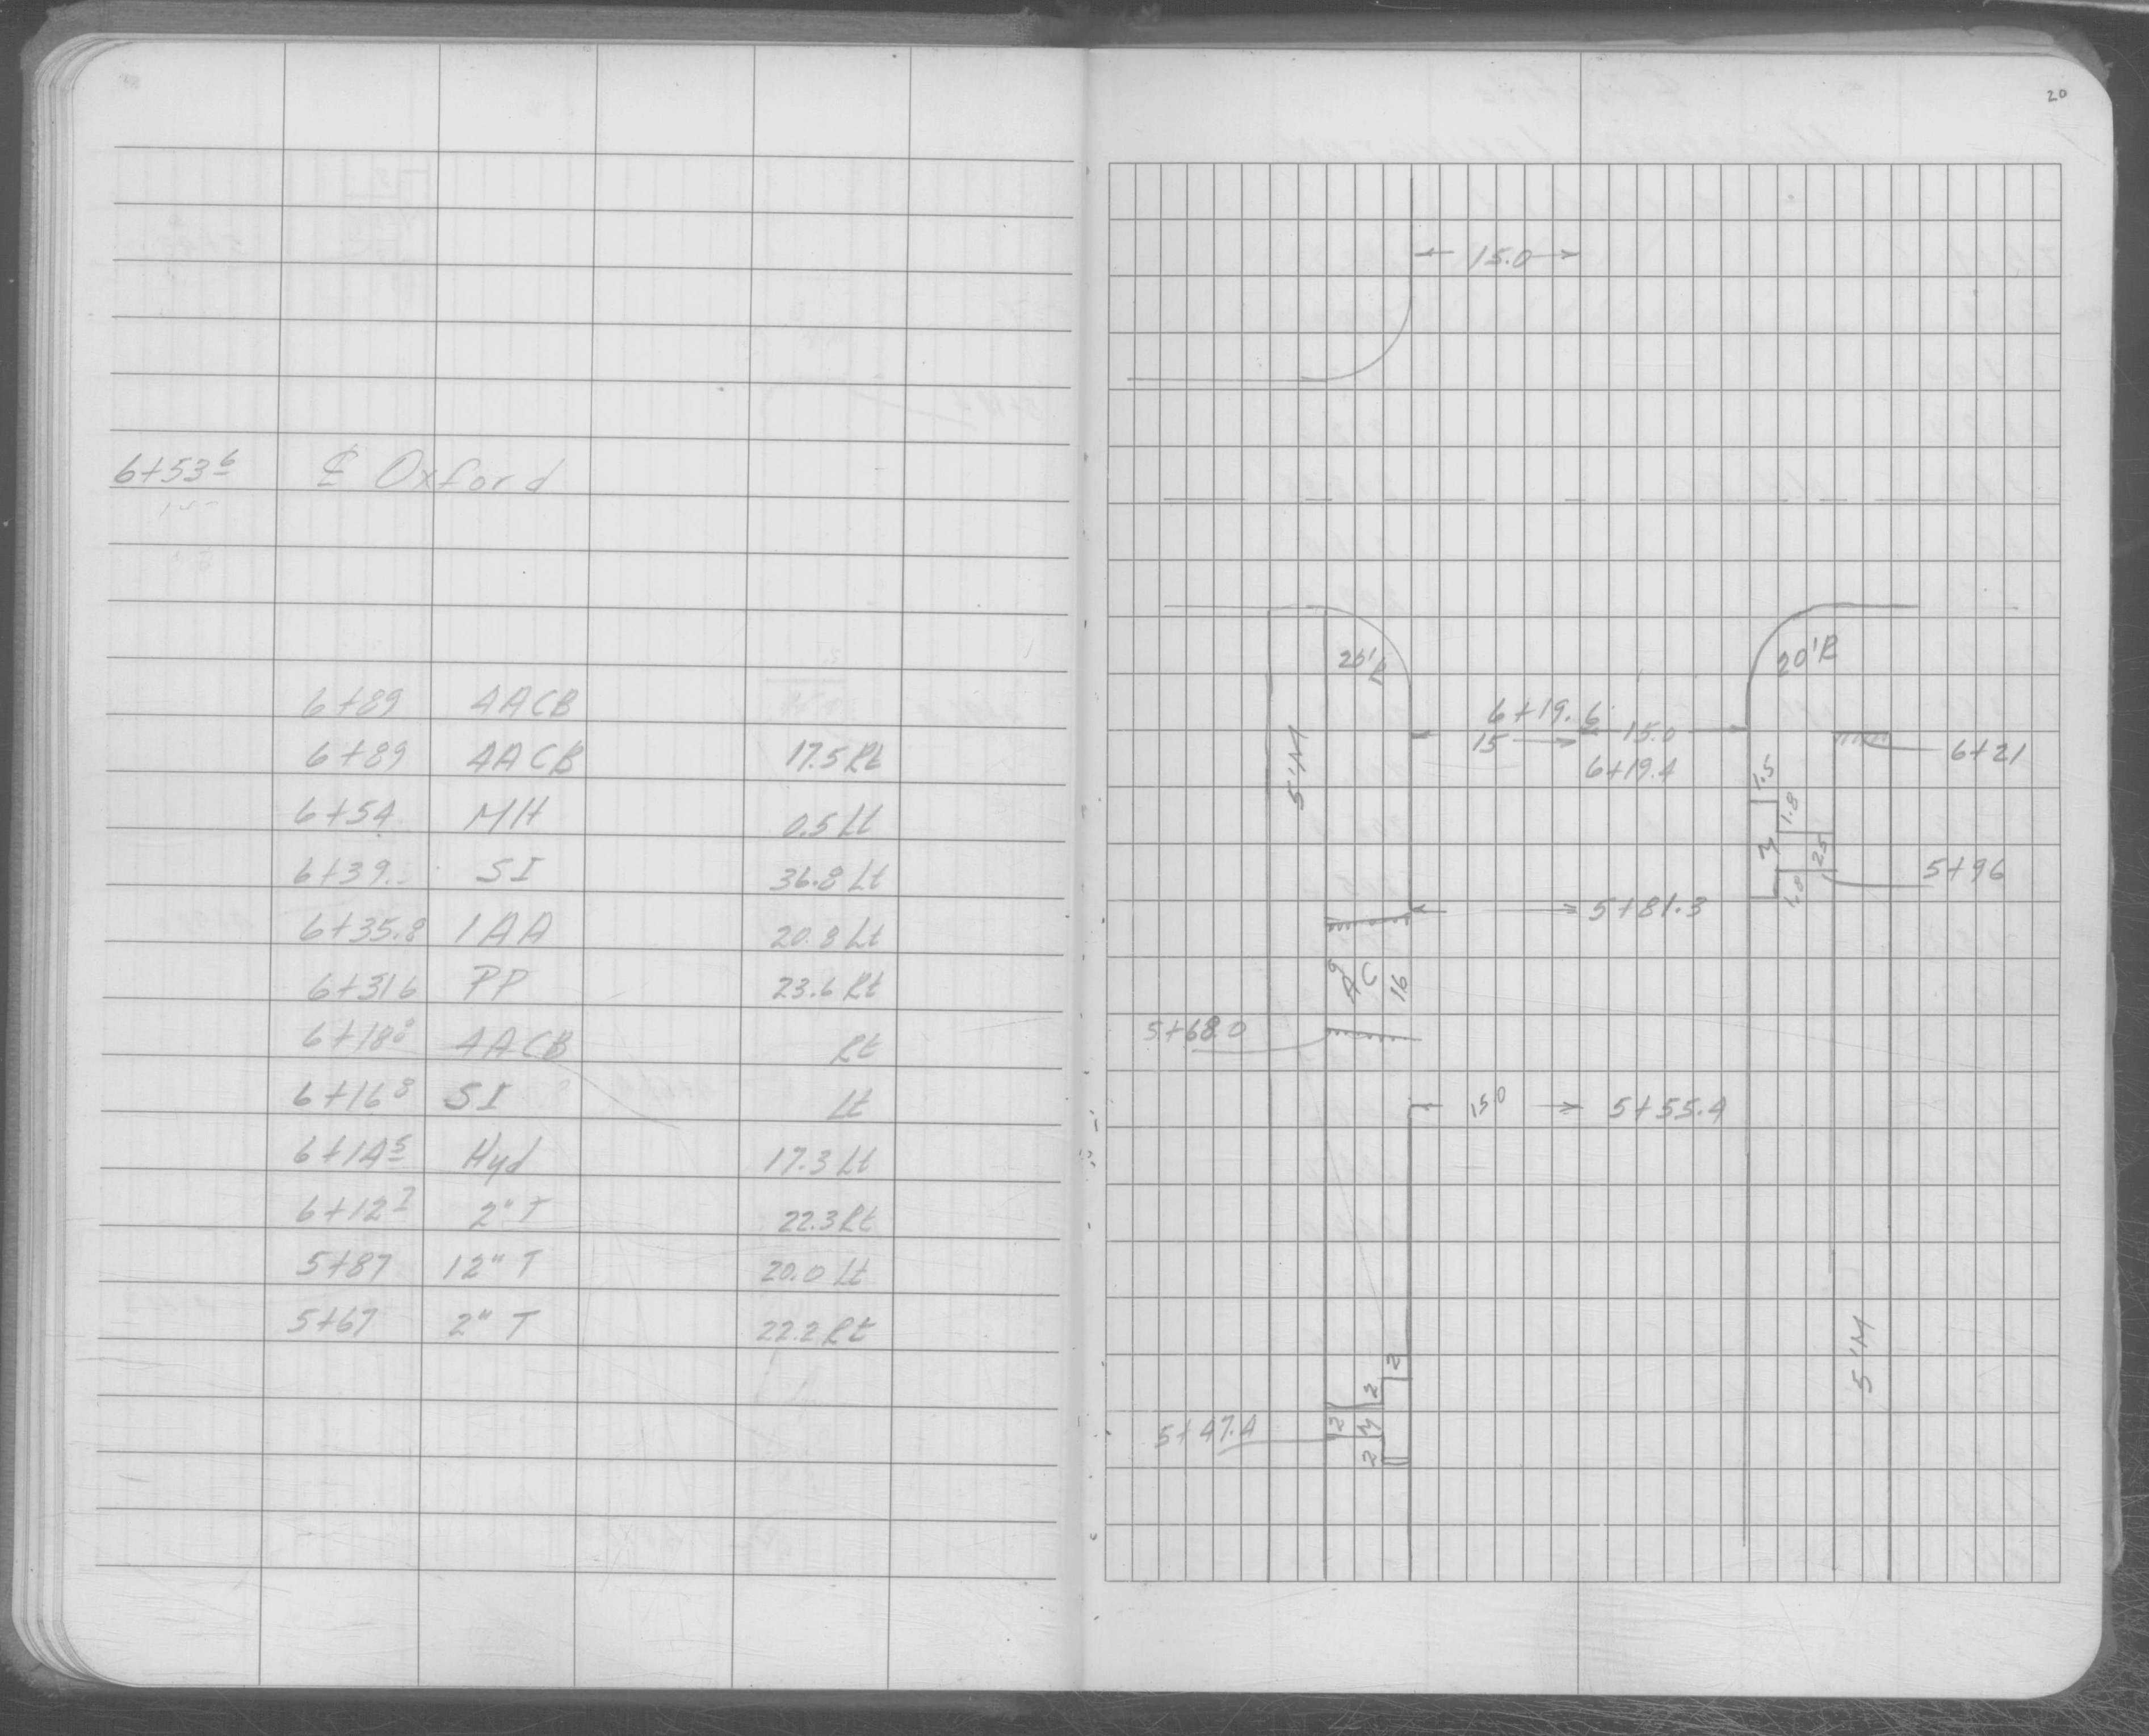 20
6+53 6 ℄ Oxford
6+89 4ACB
6+89 4ACB 17.5 Rt
6+54 MH 0.5 Lt
6+39 SI 36.8 Lt
6+35.8 1AA 20.8 Lt
6+31 6 PP 23.6 Rt
6+18 8 4ACB Rt
6+16 8 SI Lt
6+14 5 Hyd 17.3 Lt
6+12 7 2" T 22.3 Rt
5+87 12" T 20.0 Lt
5+67 2" T 22.2 Rt
15.0
20'R 20'R
6+19.6
15 15.0
6+19.4
6+21
5'M
1.5
1.8
3
2.5
1.8
5+96
5+81.3
AC
16
5+68.0
15.0 5+55.4
5'M
2
2
2 3
5+47.4
2